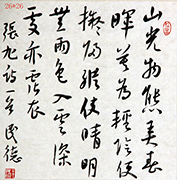 26*26
山光物態弄春
暉莫為輕陰便
擬歸縱使晴明
無雨色入雲深
處亦霑衣
張旭詩一首 民德